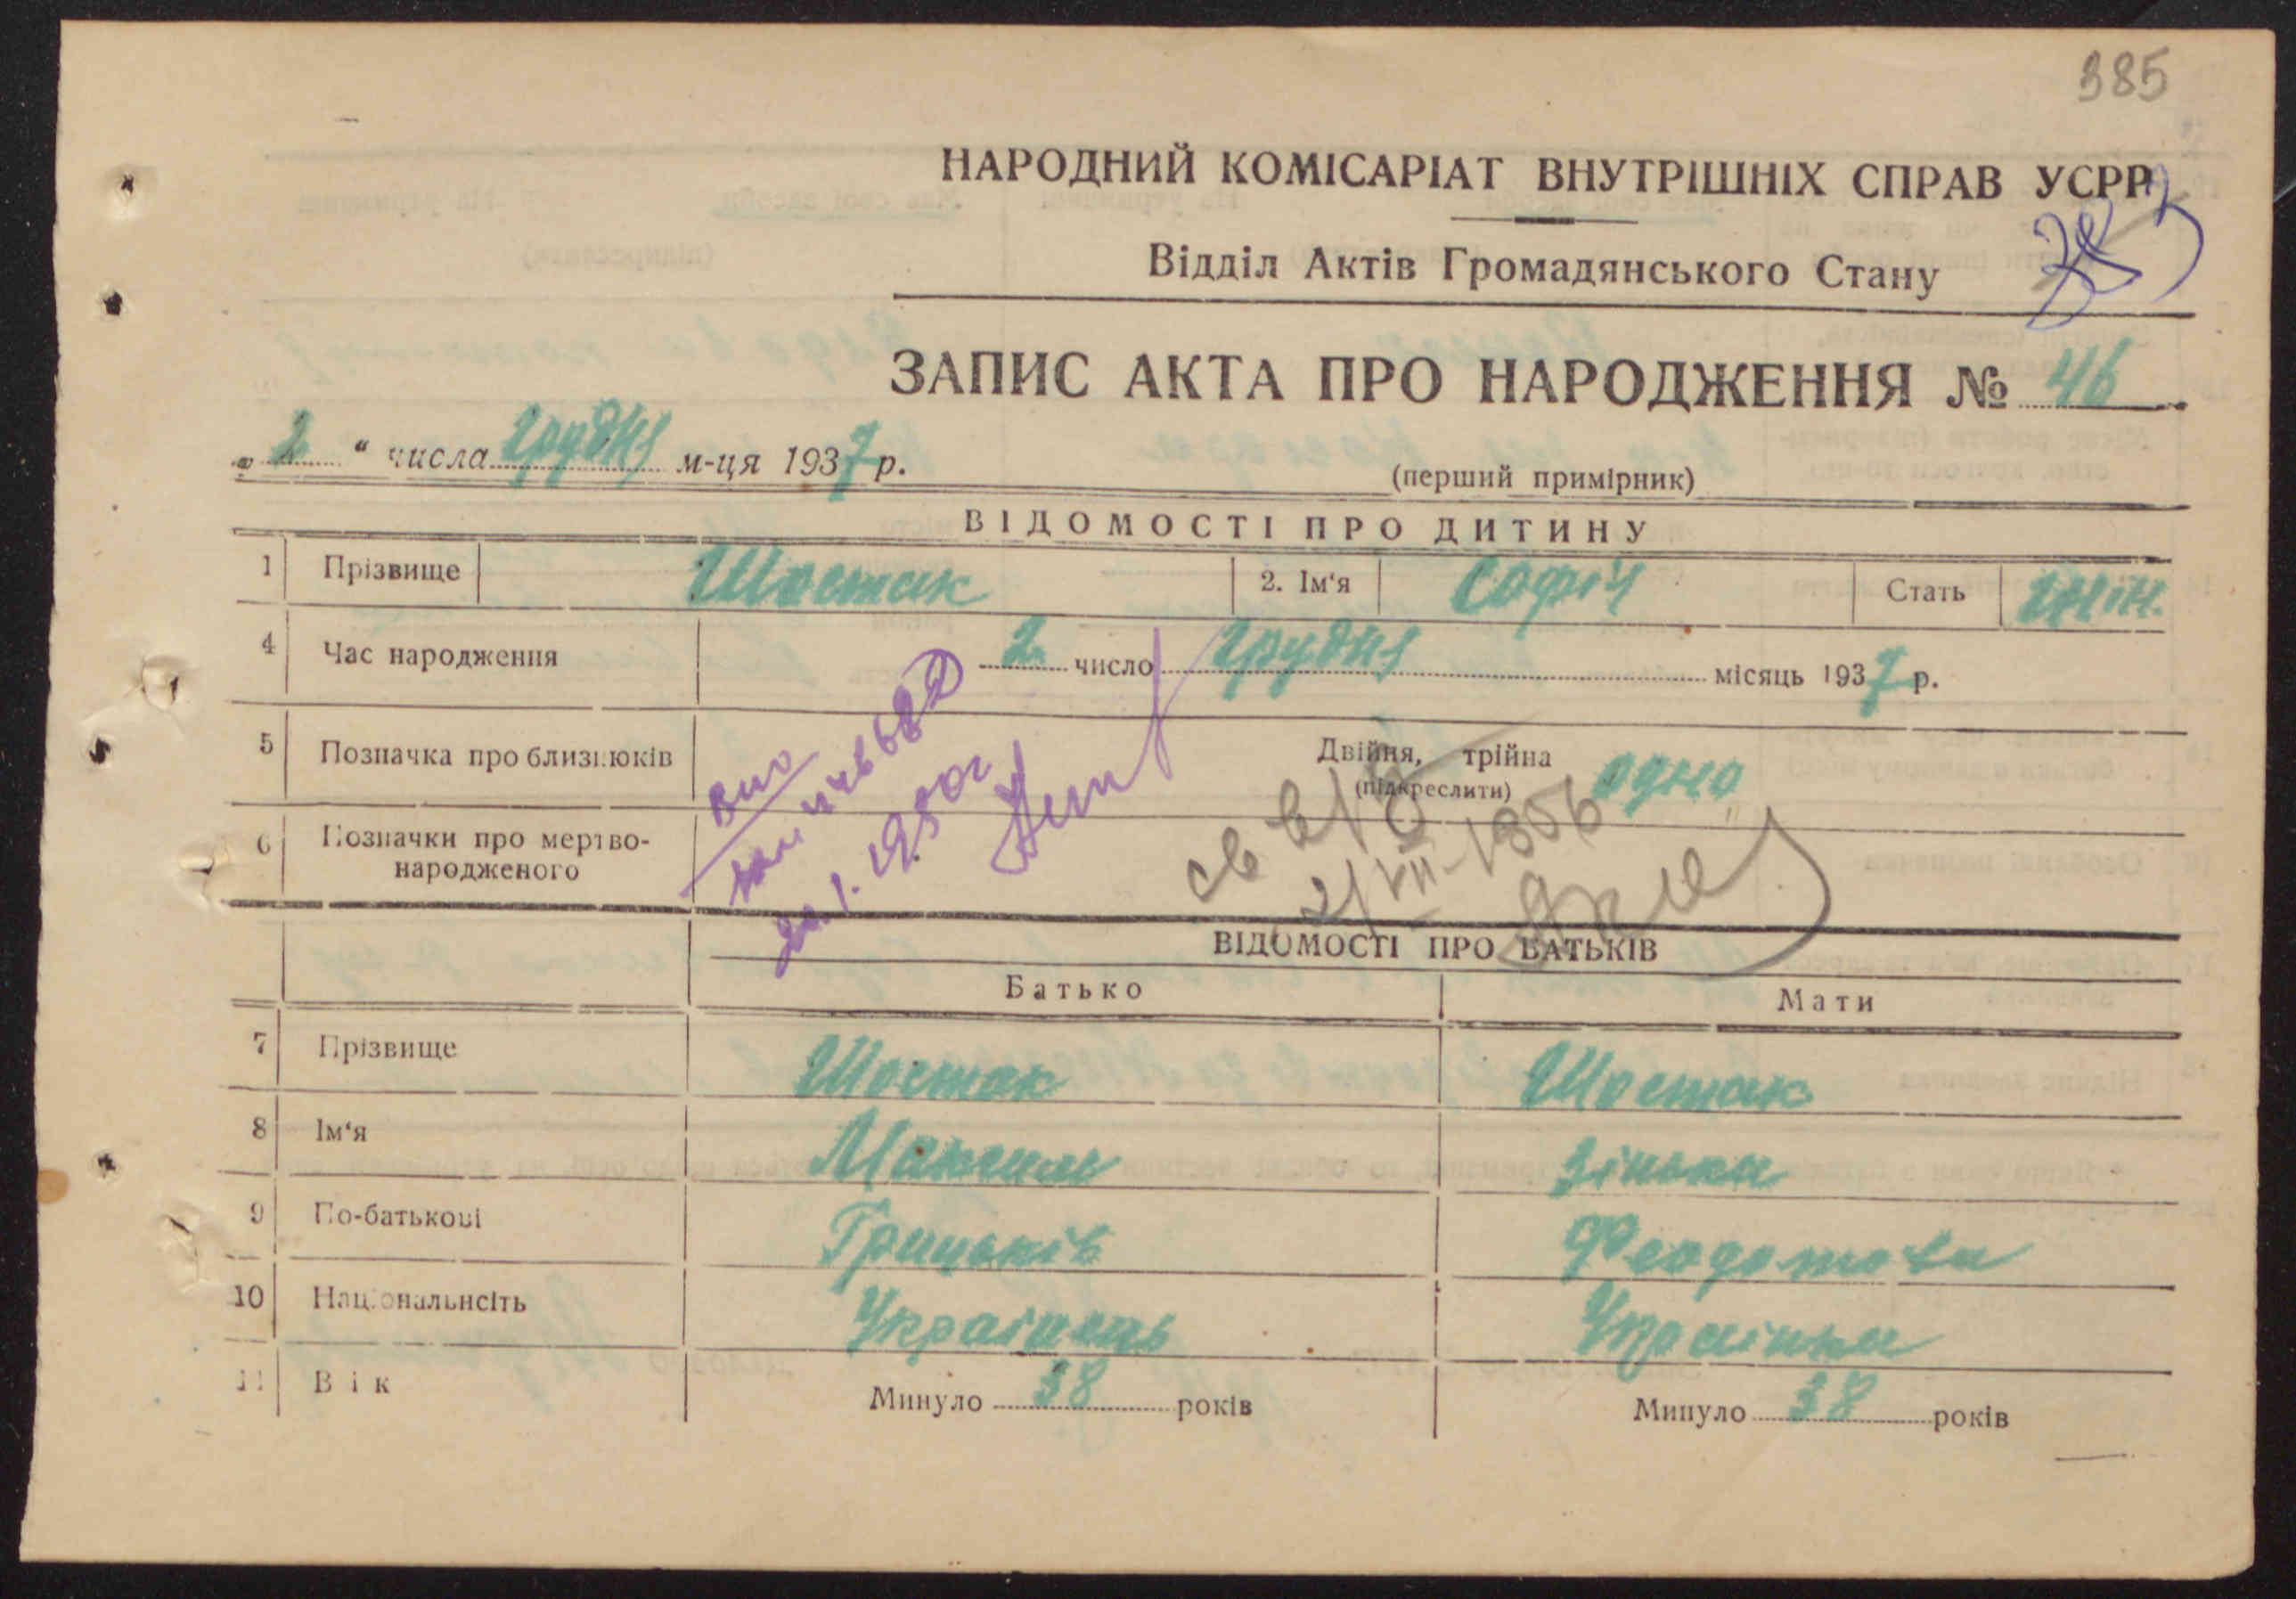 385
НАРОДНИЙ КОМІСАРІАТ ВНУТРІШНІХ СПРАВ УСРР
Відділ Актів Громадянського Стану
ЗАПИС АКТА ПРО НАРОДЖЕННЯ № 46
„ 2 “ числа грудня м-ця 1937 р.
(перший примірник)
ВІДОМОСТІ ПРО ДИТИНУ
1 Прізвище Шостак 2. Ім‘я Софія Стать жін.
4 Час народження 2 число грудня місяць 1937 р.
5 Позначка про близнюків Двійня, трійна одно
(підкреслити)
6 Позначки про мертво-
народженого
20.1.1950г
21/VII-1956
ВІДОМОСТІ ПРО БАТЬКІВ
Батько Мати
7 Прізвище Шостак Шостак
8 Ім‘я Максим Зінька
9 По-батькові Грицьків Феодотова
10 Національнсіть Українець Українка
11 Вік Минуло 38 років Минуло 38 років